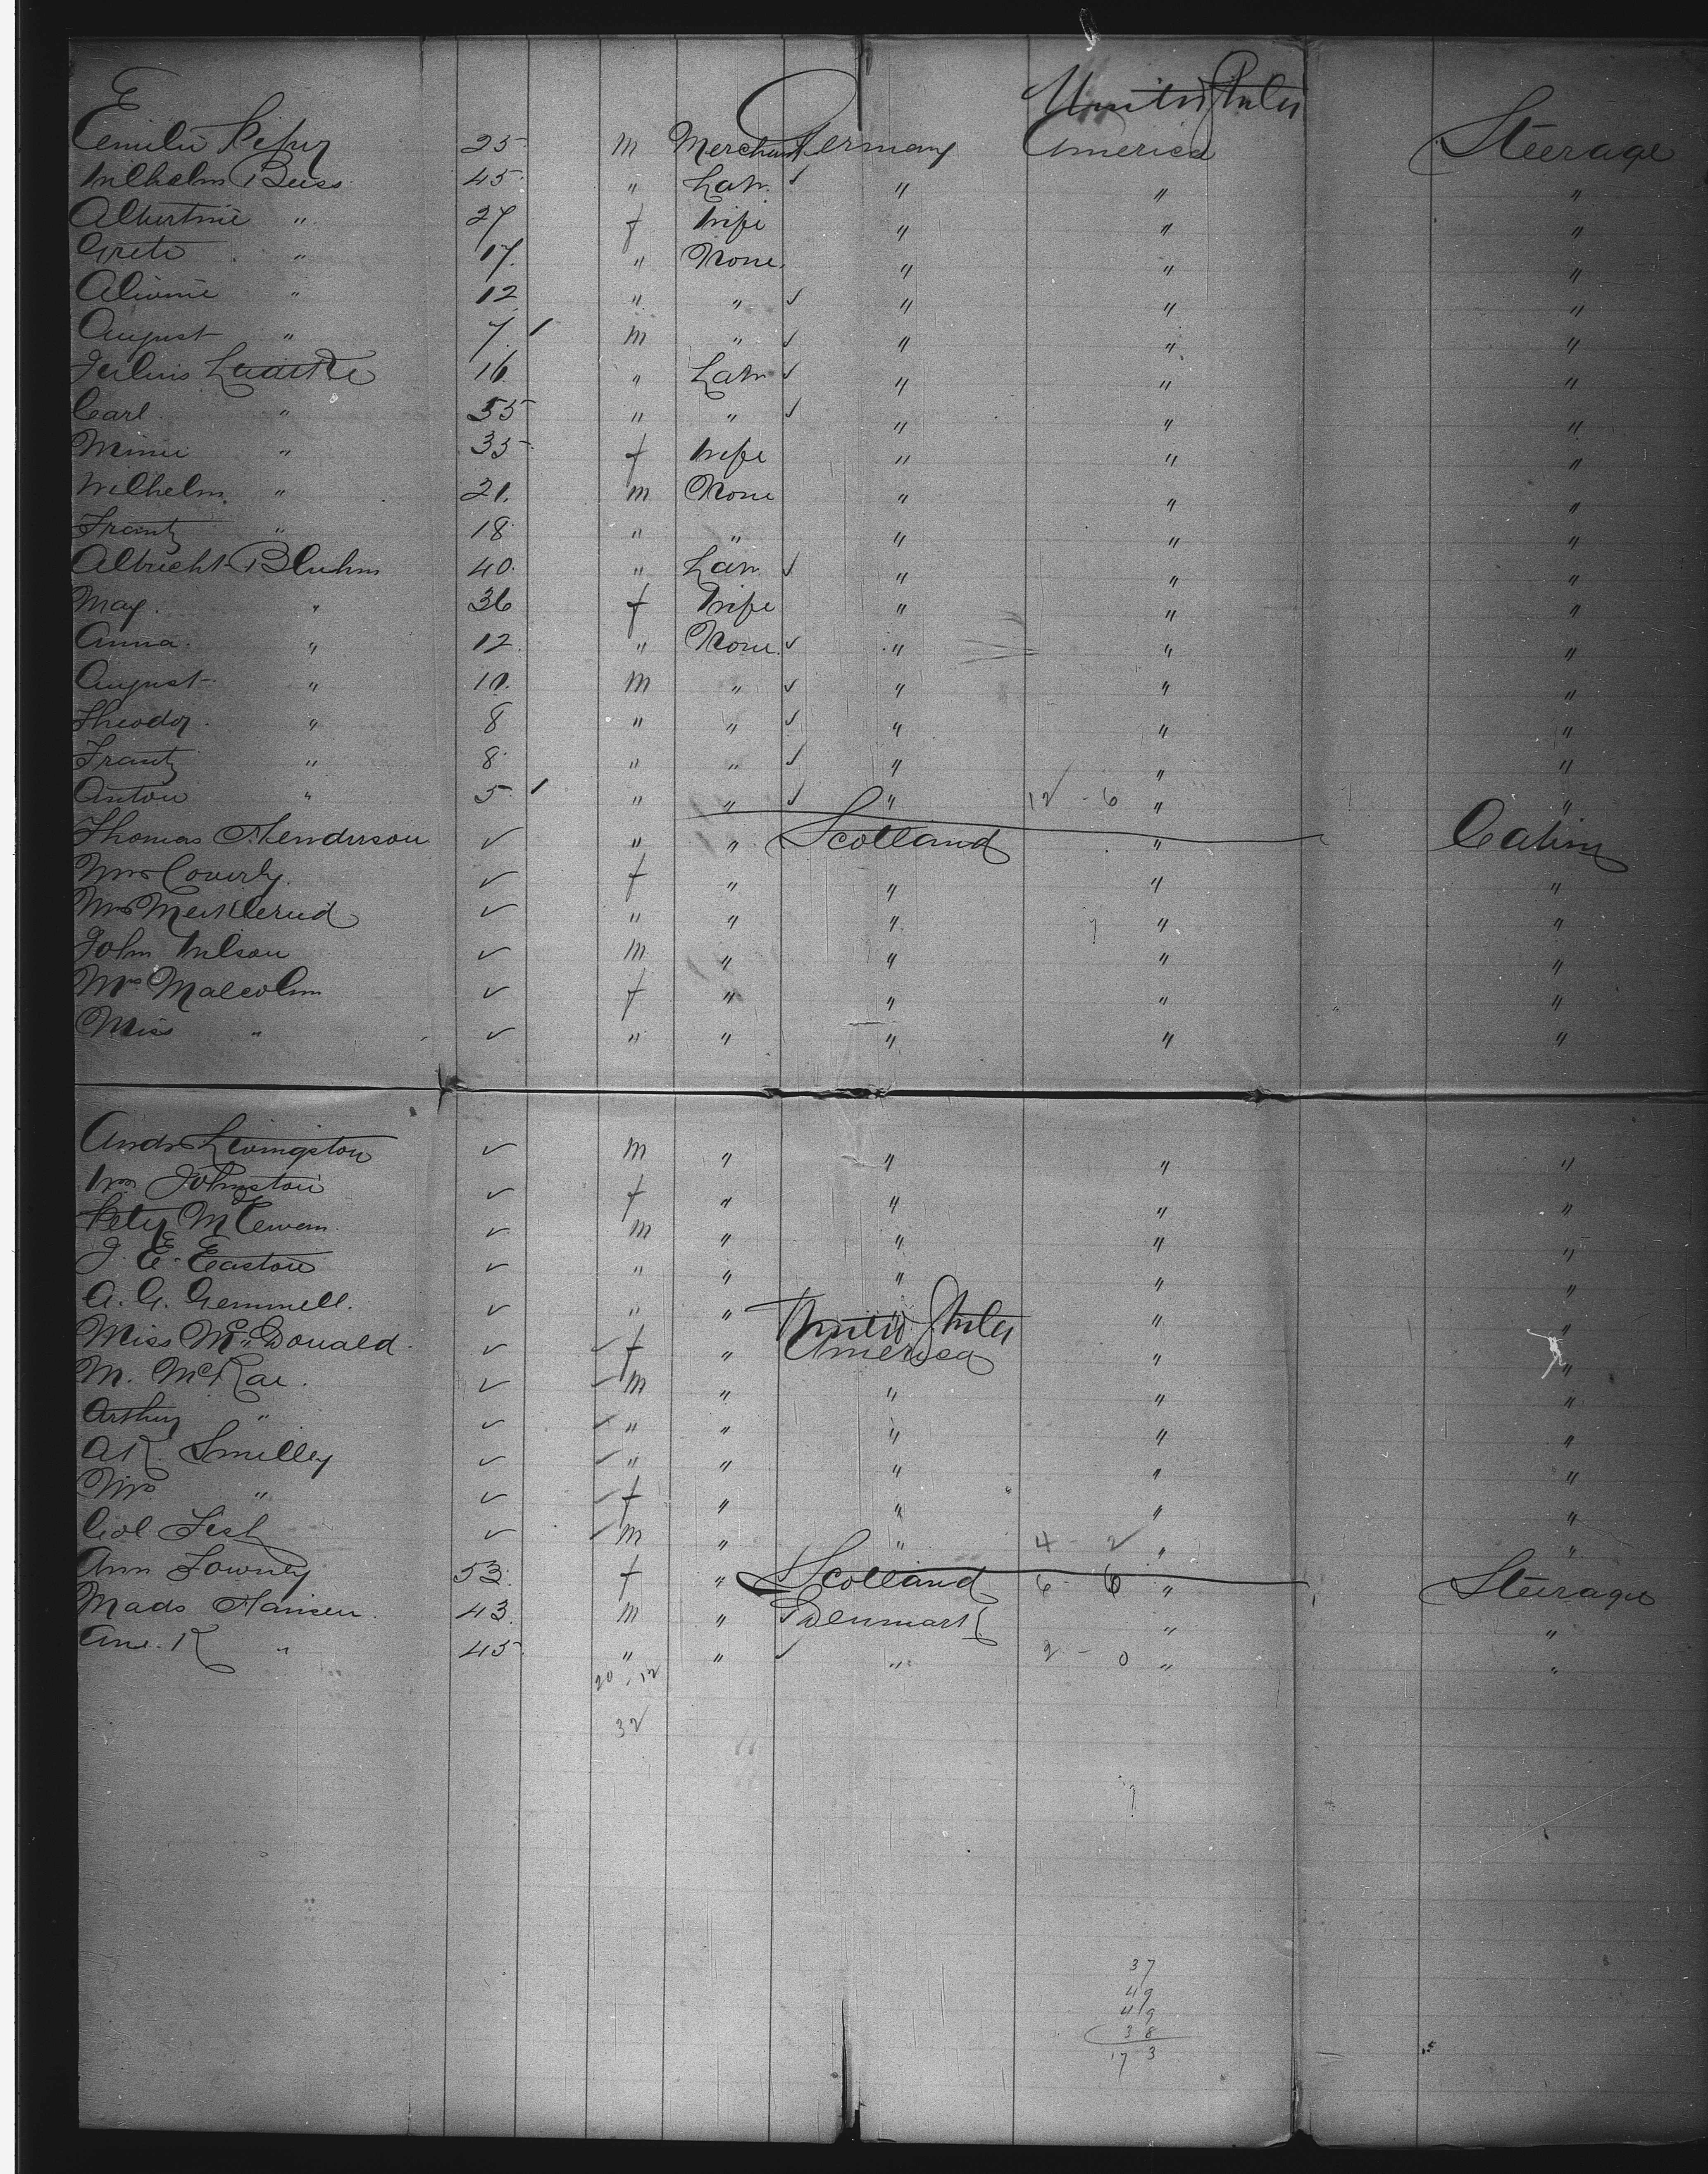 United States
Emilie 25 m Merchant Germany America Steerage
Wilhelm Beiss 45 " Labr ✓ " " "
Albertine " 27 f Wife " " "
Grete " 17 " None " " "
" 12 " " ✓ " " "
August " 7 / m " ✓ " " "
Julius 16 " Labr ✓ " " "
Carl " 55 " " ✓ " " "
Minie " 35 f Wife " " "
Wilhelm " 21 m None " " "
Frantz " 18 " " " " "
Albrecht Bluhm 40 " Labr ✓ " " "
May " 36 f Wife " " "
Anna " 12 " None ✓ " " "
August " 10 m " ✓ " " "
Theodor " 8 " " ✓ " " "
Frantz " 8 " " ✓ " " "
Anton " 5 / " " ✓ " 12 - 6 " "
Thomas Henderson ✓ " " Scotland " Cabin
Mrs Coverly ✓ f " " " "
Mrs ✓ " " " " "
John Wilson ✓ m " " " "
Mrs Malcolm ✓ f " " " "
Miss " ✓ " " " " "
Andw Livingston ✓ m " " " "
Johnston ✓ f " " " "
Peter McEwan ✓ m " " " "
J. E. Easton ✓ " " " " "
A. G. Gemmell. ✓ " " " " "
United States
Miss McDonald ✓ ✓ f " America " "
M. McRae ✓ ✓ m " " " "
Arthur " ✓ ✓ " " " " "
A K. Smilley ✓ ✓ " " " " "
Mrs " ✓ ✓ f " " " "
Col ✓ ✓ m " " 4 - 2 " "
Ann Downey 53 f " Scotland 6 - 6 " Steerage
Mads Hansen 43 m " Denmark " "
Ane. K " 45 " " ✓ " 2 - 0 " "
20 . 12
32
37
49
49
38
173